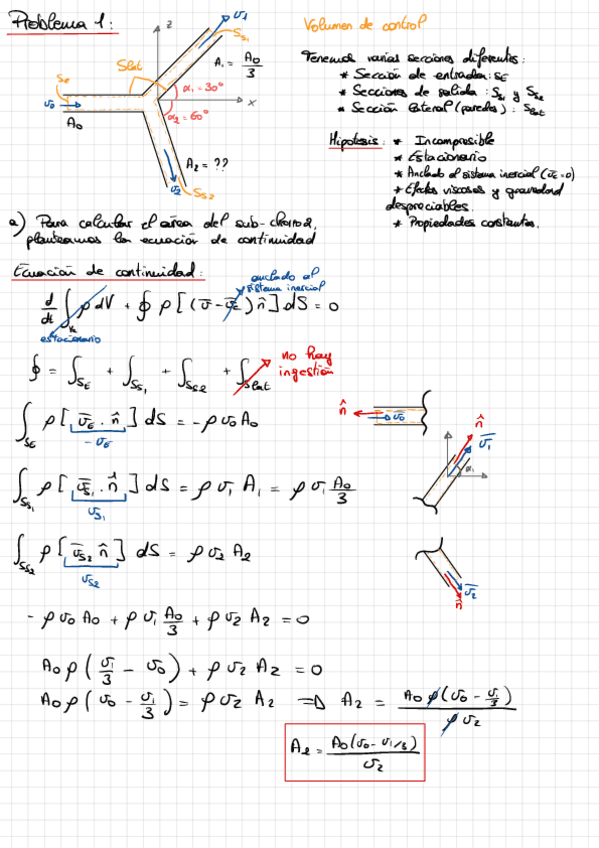 Problema 1:
z
v₁
Ss₁
A₁ = A₀/3
Slat
SE
v₀
A₀
α₁=30°
x
α₂=60°
A₂ = ??
v₂
Ss2
Volumen de control
Tenemos varias secciones diferentes:
* Sección de entrada: SE
* Secciones de salida: Ss₁ y Ss2
* Sección lateral (paredes): Slat
Hipótesis: * Incompresible
* Estacionario
* Anclado al sistema inercial (v̄c=0)
* Efectos viscosos y gravedad
despreciables.
* Propiedades constantes.
a) Para calcular el área del sub-chorro 2,
planteamos la ecuación de continuidad
Ecuación de continuidad:
anclado al
sistema inercial
d/dt ∫Vc ρ dV + ∮ ρ [(v̄ - v̄c) n̂] dS = 0
estacionario
∮ = ∫SE + ∫Ss₁ + ∫Ss2 + ∫Slat
no hay
ingestión
∫SE ρ [v̄E · n̂] dS = -ρ v₀ A₀
-vE
n̂
v̄₀
∫Ss₁ ρ [v̄s₁ · n̂] dS = ρ v₁ A₁ = ρ v₁ A₀/3
vs₁
n̂
v̄₁
α₁
∫Ss2 ρ [v̄s2 n̂] dS = ρ v₂ A₂
vs2
v̄₂
n̂
- ρ v₀ A₀ + ρ v₁ A₀/3 + ρ v₂ A₂ = 0
A₀ ρ (v₁/3 - v₀) + ρ v₂ A₂ = 0
A₀ ρ (v₀ - v₁/3) = ρ v₂ A₂ ⇒ A₂ = A₀ ρ (v₀ - v₁/3) / ρ v₂
A₂ = A₀(v₀ - v₁/3) / v₂